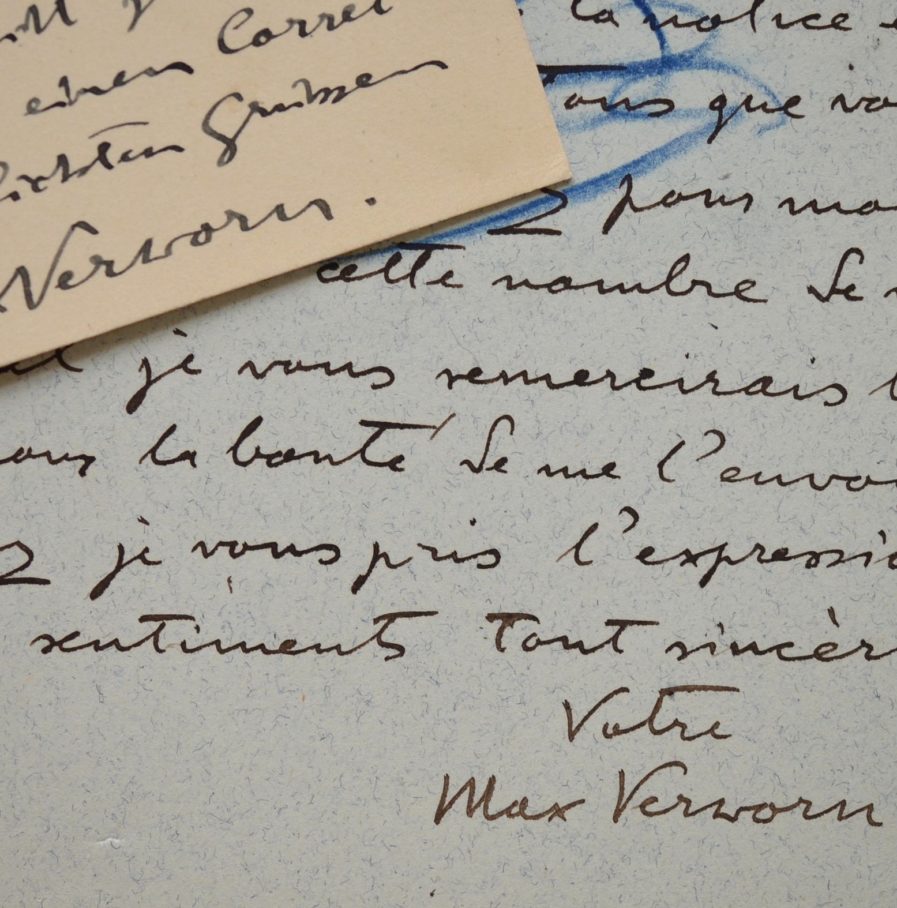 einen Correc
Grüssen
Verworn.
la notice
que vo
pour mo
cette nombre de
je vous remercirais
la bonté de me l'envo
je vous pris l'expressio
sentiments tout sincèr
Votre
Max Verworn